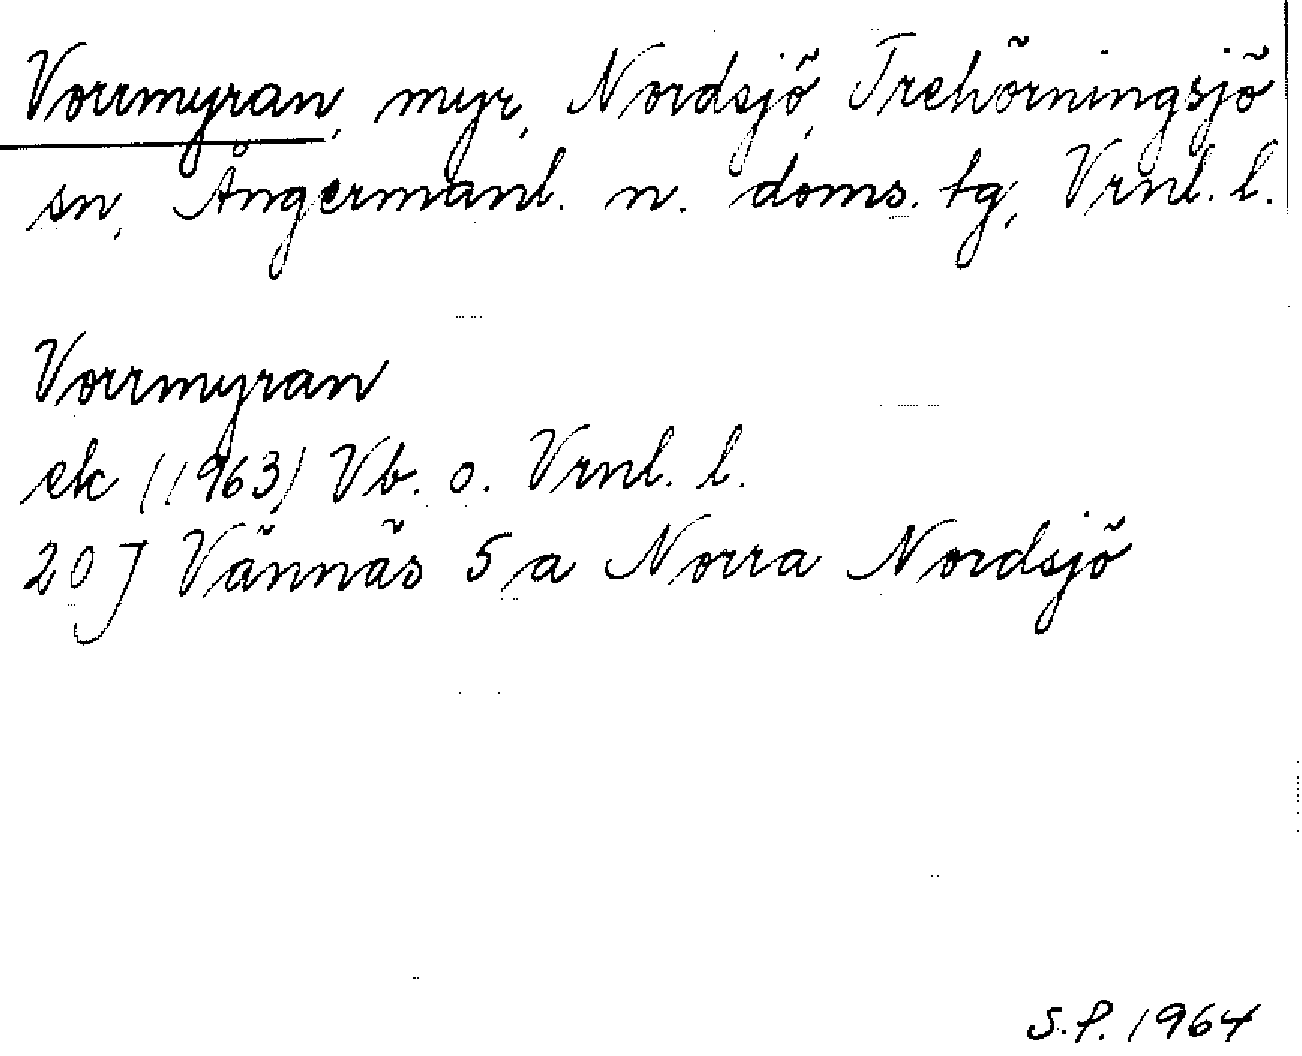 Vorrmyran, myr, Nordsjö, Trehörningsjö
sn, Ångermanl. n. doms. tg, Vrnl. l.
Vorrmyran
ek (1963) Vb. o. Vrnl. l.
20 J Vännäs 5 a Norra Nordsjö
S.P. 1964